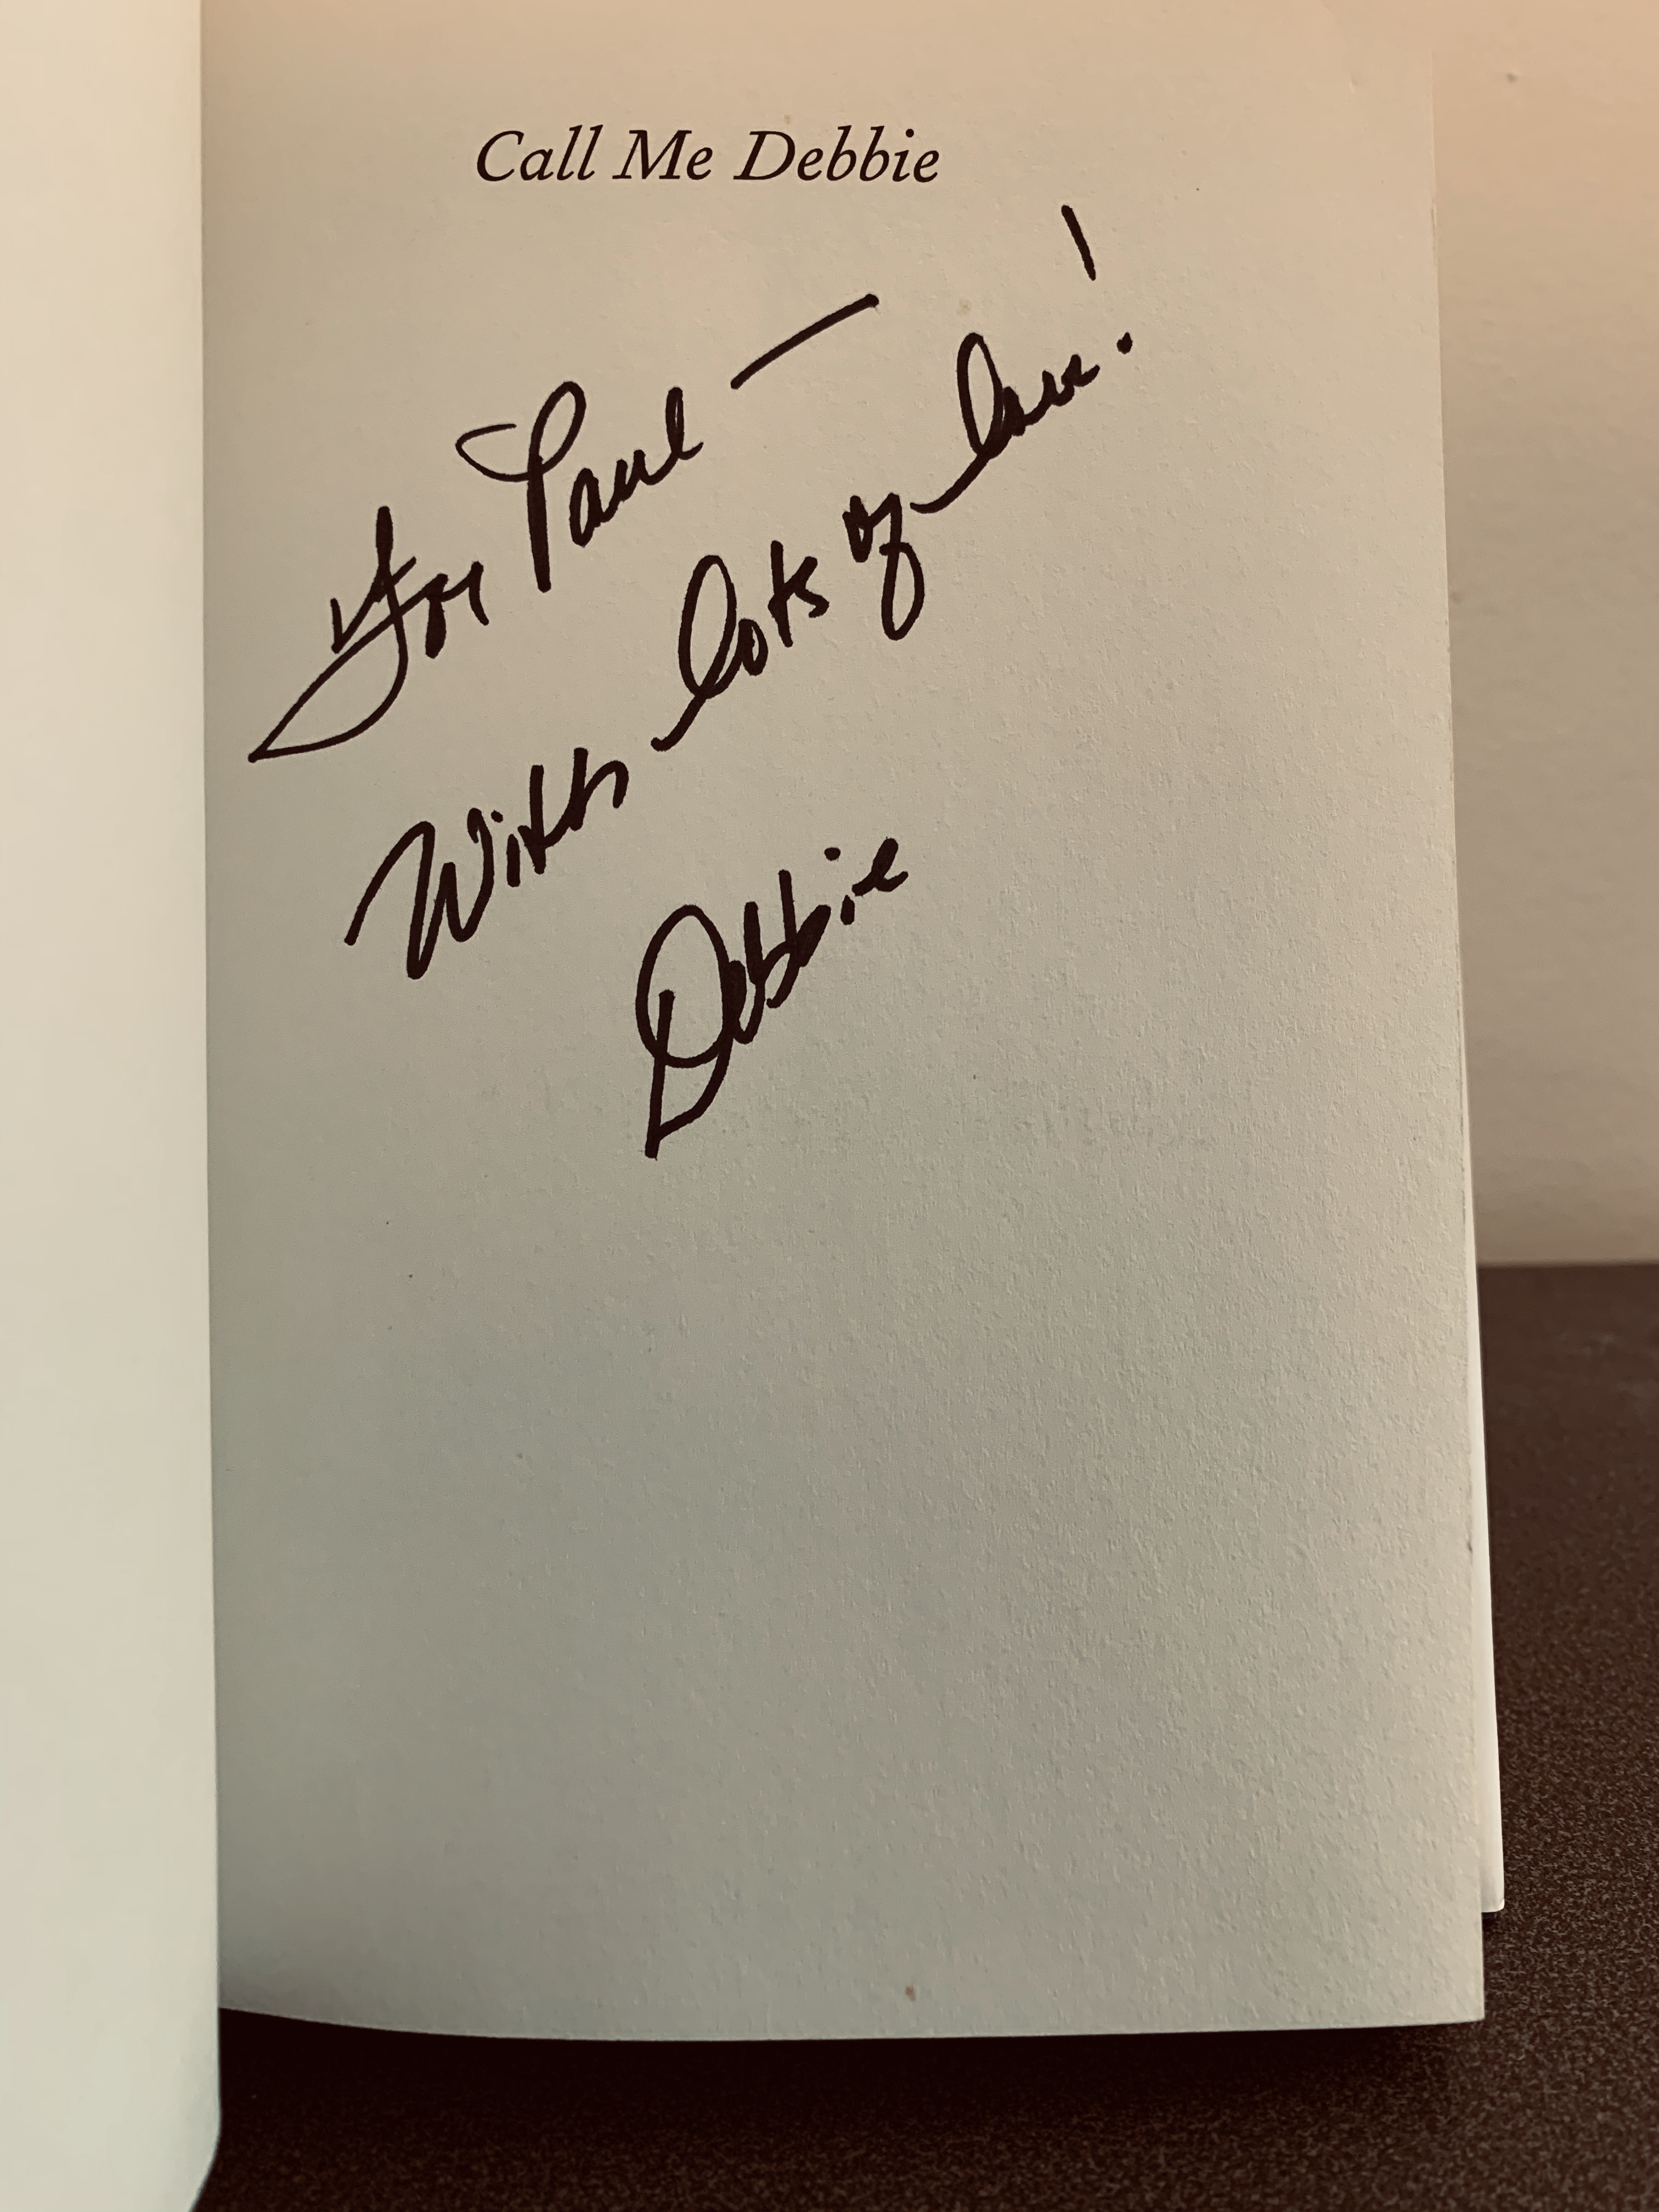 Call Me Debbie
For Paul —
With lots of love!
Debbie